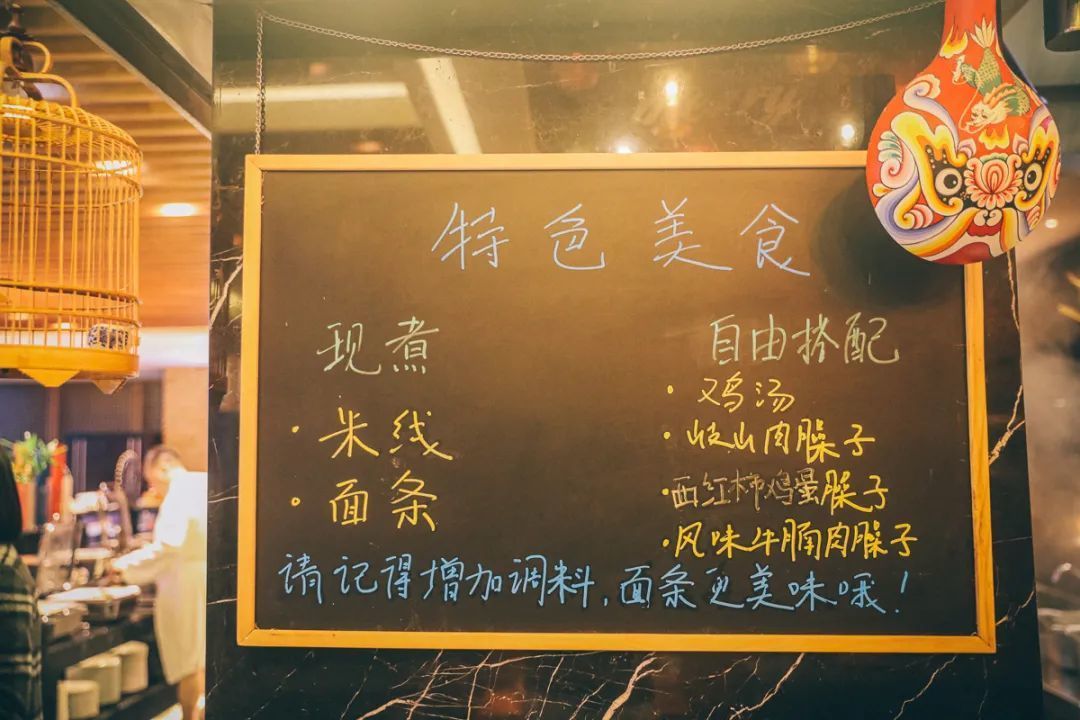 特色美食
现煮
· 米线
· 面条
自由搭配
· 鸡汤
· 岐山肉臊子
· 西红柿鸡蛋臊子
· 风味牛腩肉臊子
请记得增加调料,面条更美味哦!